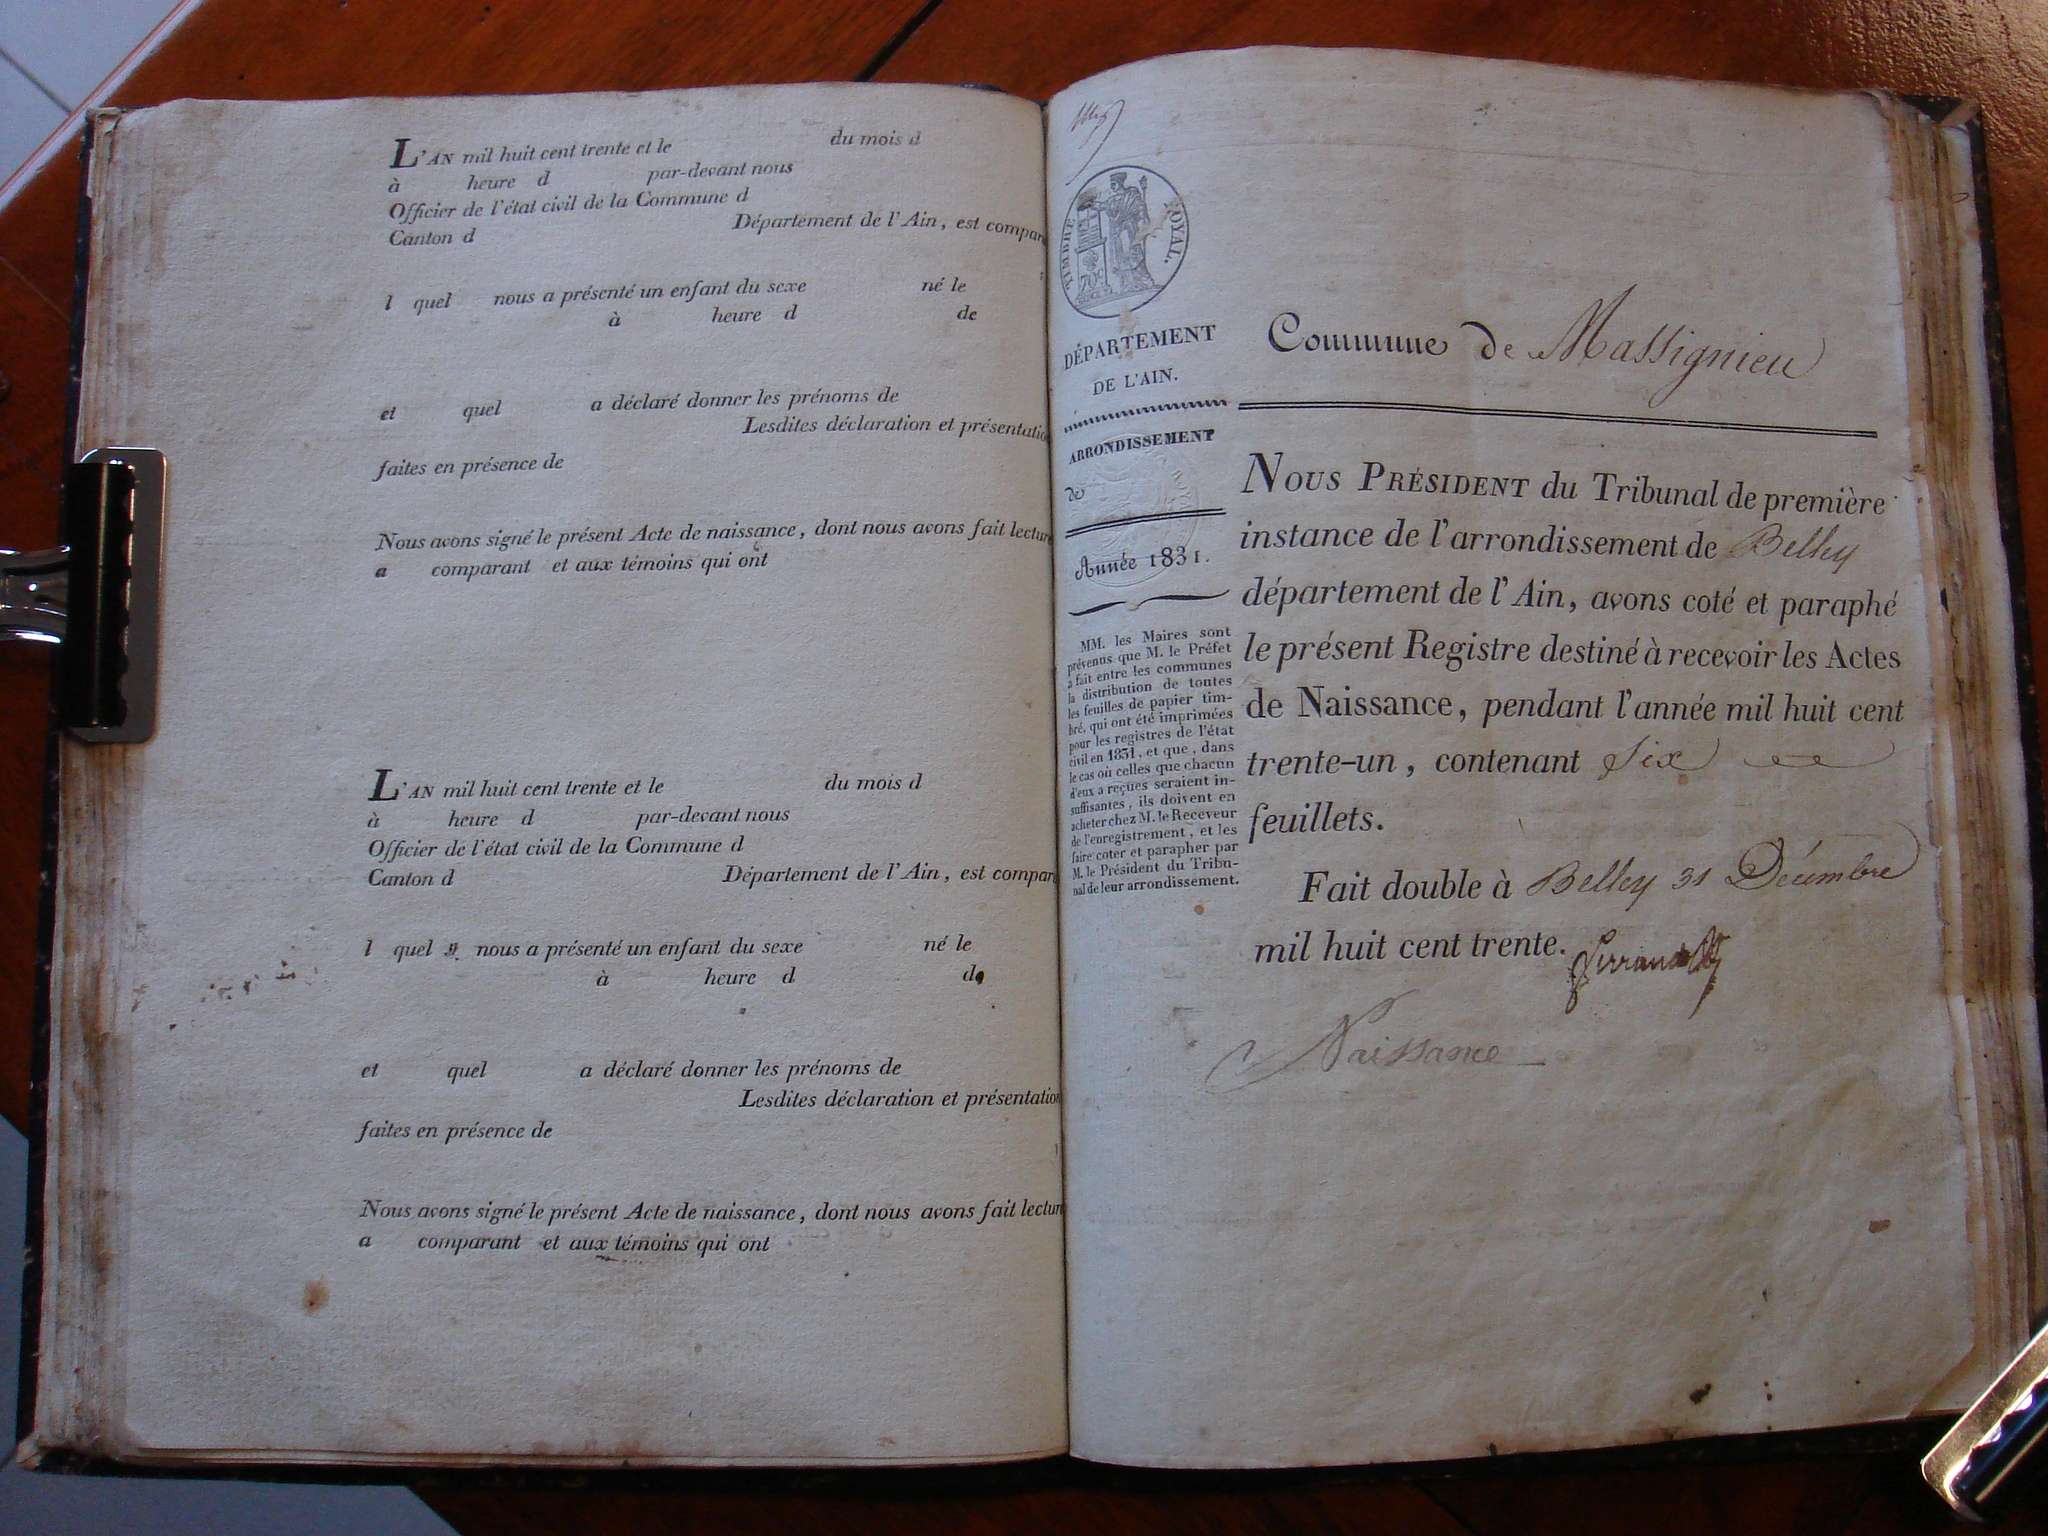 L'AN mil huit cent trente et le du mois d
à heure d par-devant nous
Officier de l'état civil de la Commune d
Canton d Département de l'Ain, est compar
l quel nous a présenté un enfant du sexe né le
à heure d de
et quel a déclaré donner les prénoms de
Lesdites déclaration et présentation
faites en présence de
Nous avons signé le présent Acte de naissance, dont nous avons fait lecture
a comparant et aux témoins qui ont
L'AN mil huit cent trente et le du mois d
à heure d par-devant nous
Officier de l'état civil de la Commune d
Canton d Département de l'Ain, est compar
l quel nous a présenté un enfant du sexe né le
à heure d de
et quel a déclaré donner les prénoms de
Lesdites déclaration et présentation
faites en présence de
Nous avons signé le présent Acte de naissance, dont nous avons fait lectur
a comparant et aux témoins qui ont
TIMBRE ROYAL.
DÉPARTEMENT
DE L'AIN.
ARRONDISSEMENT
de
Année 1831.
MM. les Maires sont
prévenus que M. le Préfet
a fait entre les communes
la distribution de toutes
les feuilles de papier tim-
bré, qui ont été imprimées
pour les registres de l'état
civil en 1831, et que, dans
le cas où celles que chacun
d'eux a reçues seraient in-
suffisantes, ils doivent en
acheter chez M. le Receveur
de l'enregistrement, et les
faire coter et parapher par
M. le Président du Tribu-
nal de leur arrondissement.
Commune de Massignieu
NOUS PRÉSIDENT du Tribunal de première
instance de l'arrondissement de Belley
département de l'Ain, avons coté et paraphé
le présent Registre destiné à recevoir les Actes
de Naissance, pendant l'année mil huit cent
trente-un, contenant six
feuillets.
Fait double à Belley 31 Décembre
mil huit cent trente.
Naissance